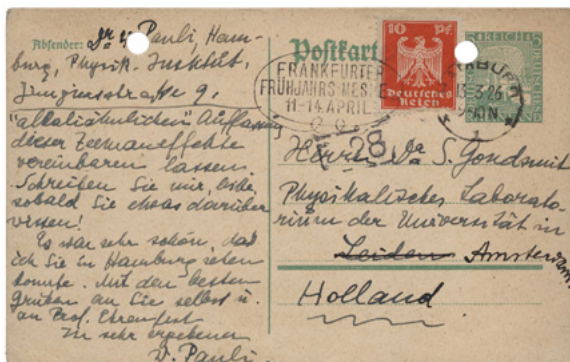 Absender: Dr W. Pauli, Ham-
burg, Physik. Institut,
Jungiusstrasse 9.
"alkaliähnlichen" Auffassung
dieser Zeemaneffekte
vereinbaren lassen.
Schreiben Sie mir, bitte,
sobald Sie etwas darüber
wissen!
Es war sehr schön, daß
ich Sie in Hamburg sehen
konnte. Mit den besten
Grüßen an Sie selbst u.
an Prof. Ehrenfest
Ihr sehr ergebener
W. Pauli.
Postkart
FRANKFURTER
FRÜHJAHRS-MESSE
11-14. APRIL
10 Pf.
Deutsches
Reich
REICH
13.3.26
28
Herrn Dr. S. Goudsmit
Physikalisches Laborato-
rium der Universität in
Leiden Amsterdam
Holland